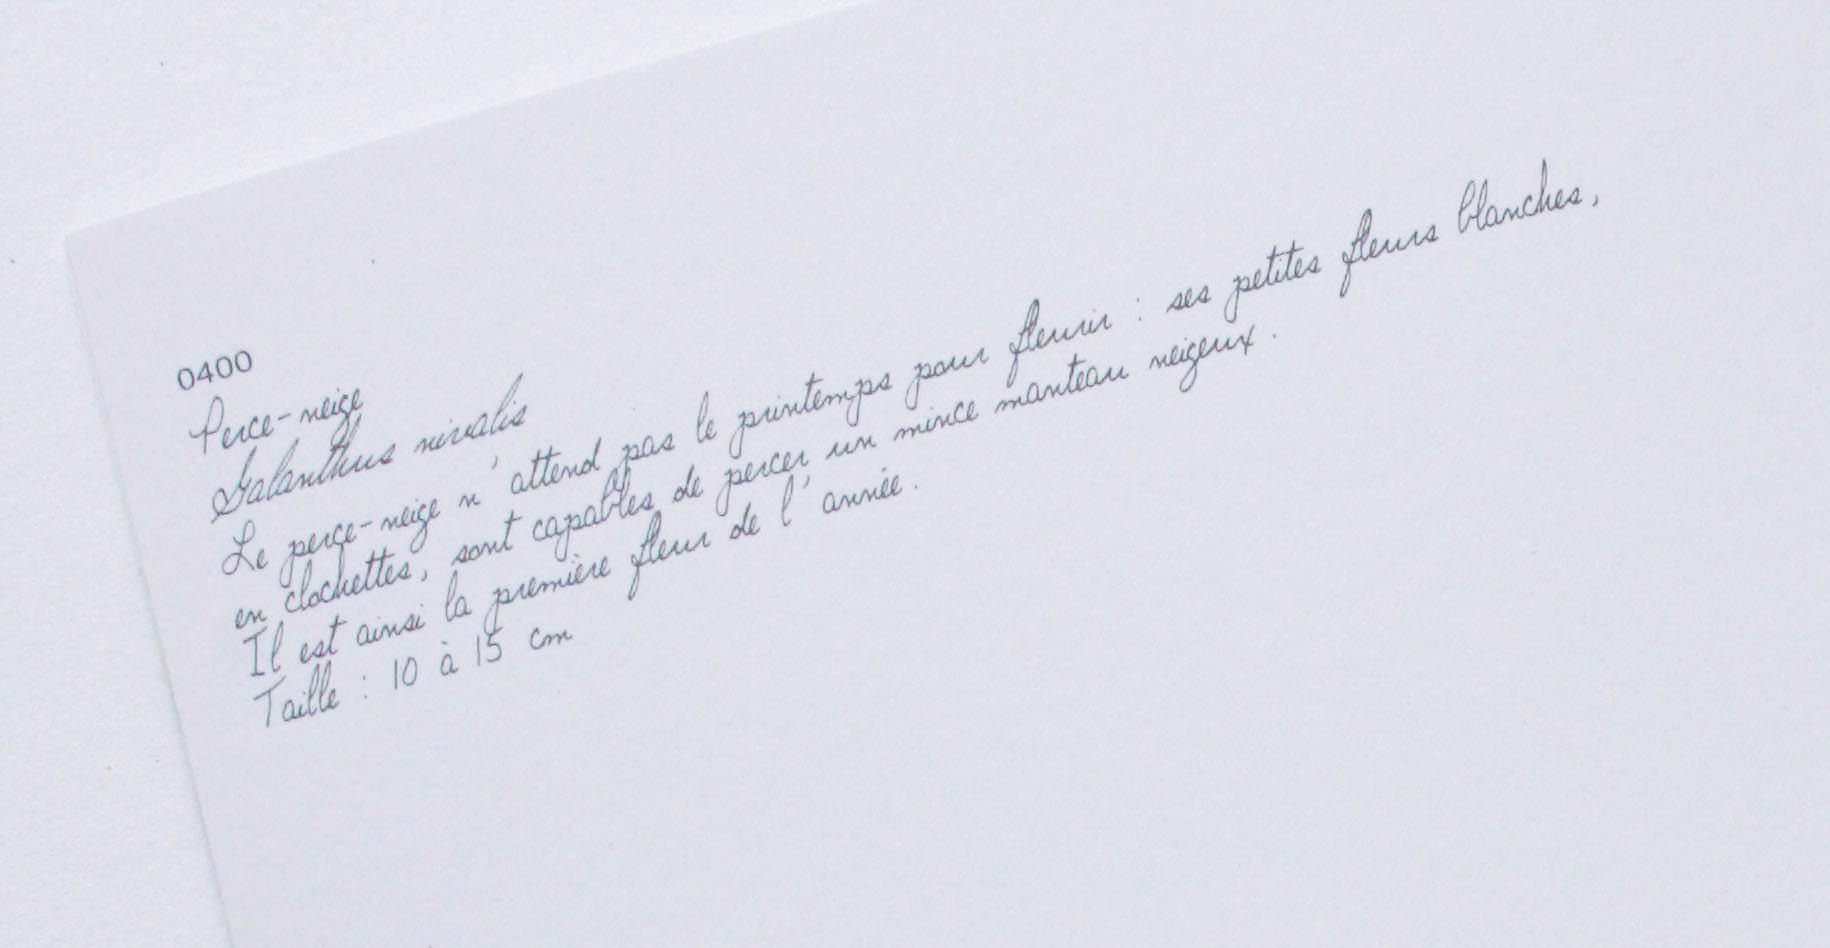 0400
Perce-neige
Galanthus nivalis
Le perce-neige n'attend pas le printemps pour fleurir : ses petites fleurs blanches,
en clochettes, sont capables de percer un mince manteau neigeux.
Il est ainsi la première fleur de l'année.
Taille : 10 à 15 cm